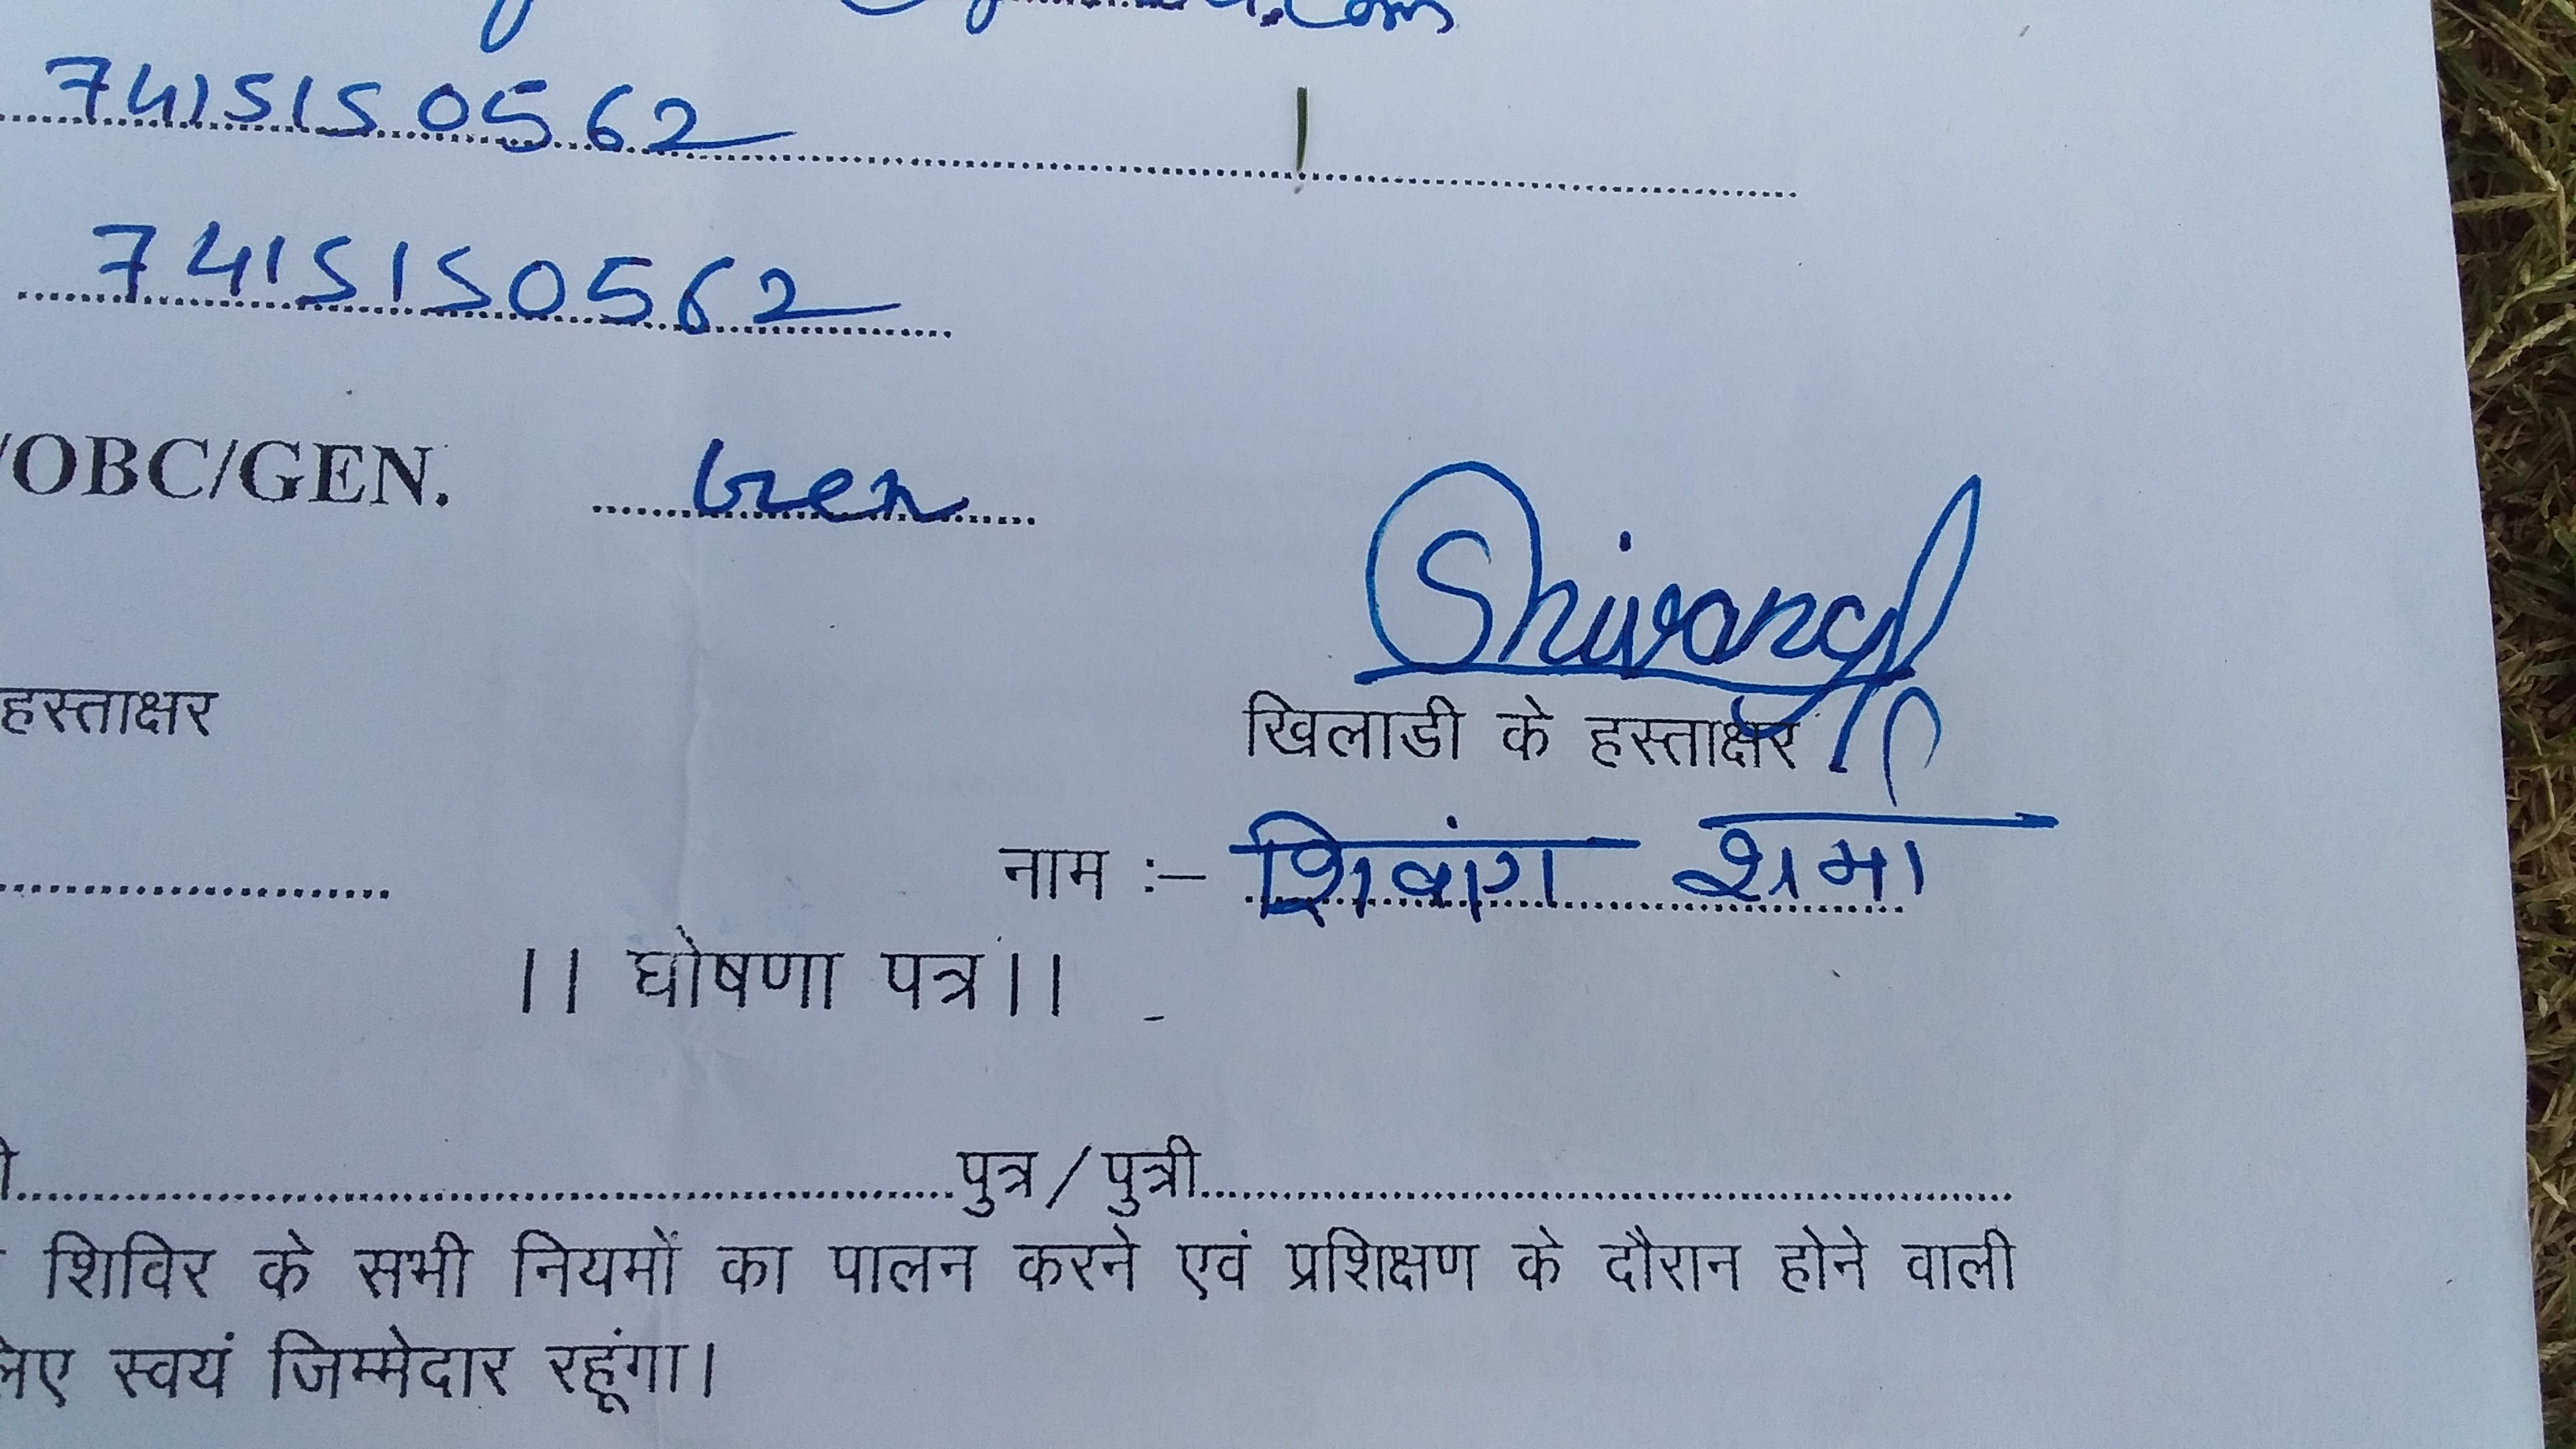 .com
7415150562
7415150562
/OBC/GEN. Gen
Shivang
हस्ताक्षर खिलाडी के हस्ताक्षर
नाम :– शिवांग शर्मा
।। घोषणा पत्र।।
पुत्र / पुत्री
शिविर के सभी नियमों का पालन करने एवं प्रशिक्षण के दौरान होने वाली
लिए स्वयं जिम्मेदार रहूंगा।